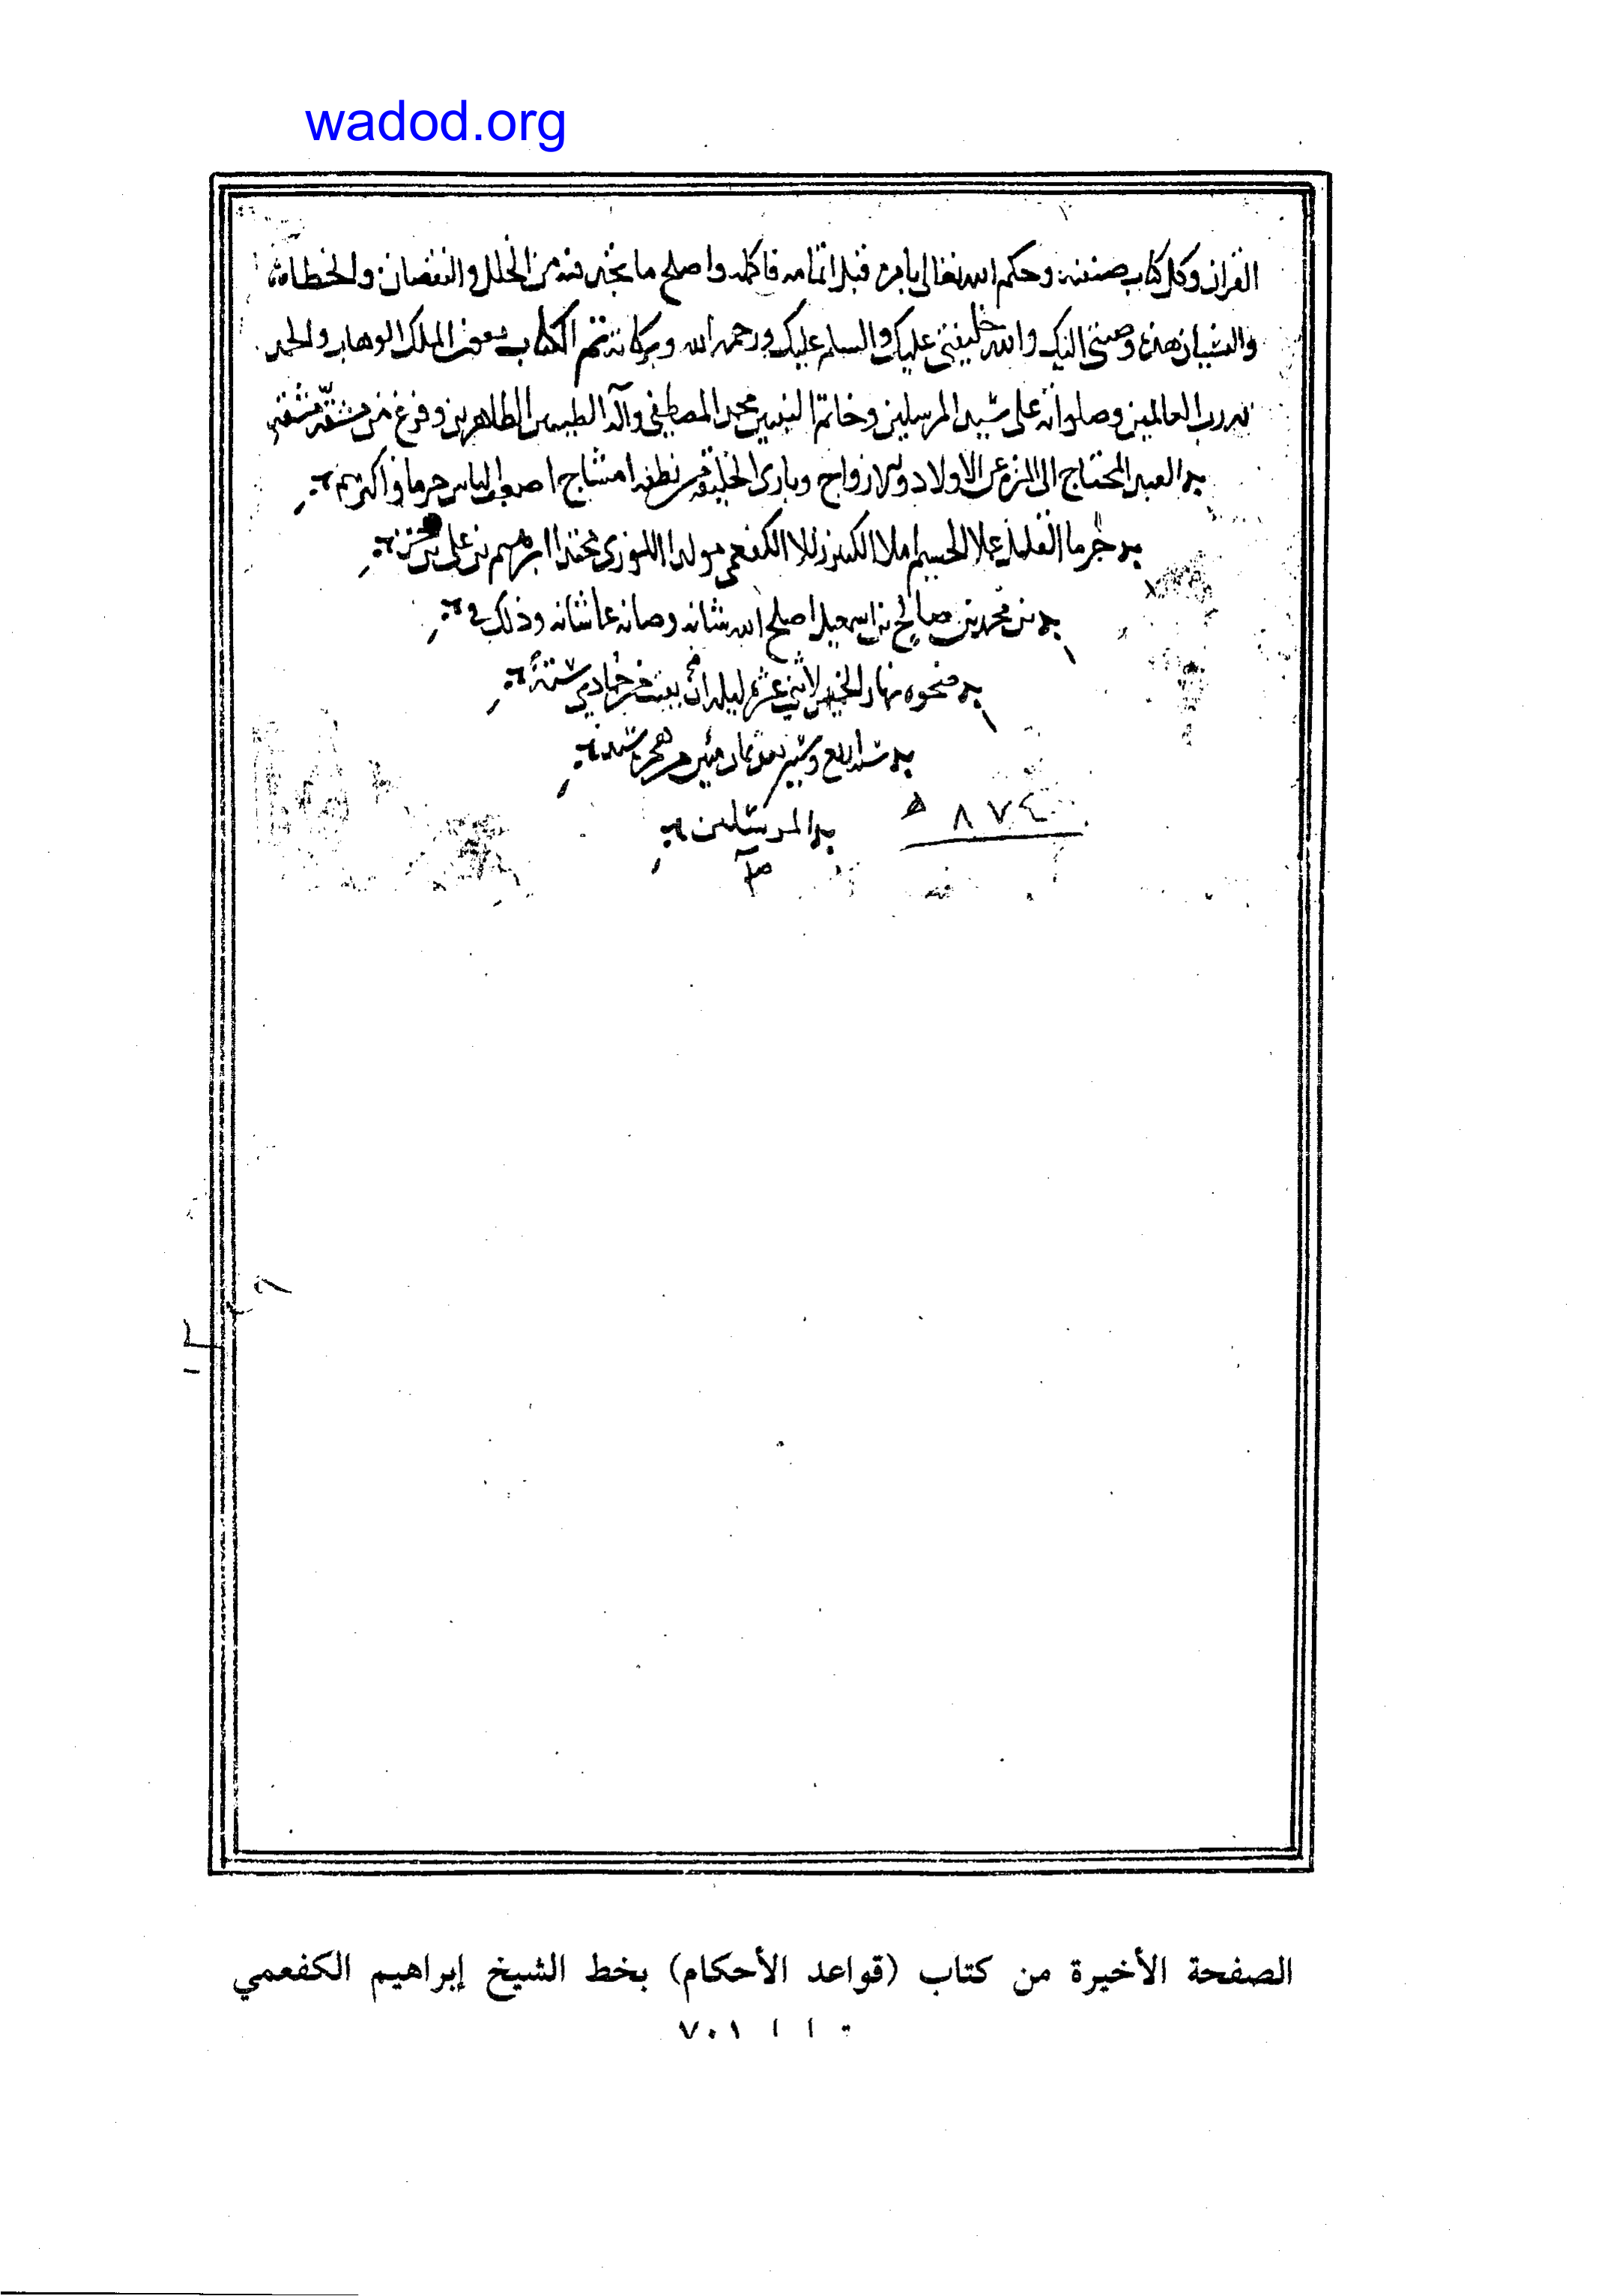 wadod.org
القران وكل كتاب صنفته وحكم الله تعالى بامره قبل اتمامه فاكمله واصلح ما تجده فيه من الخلل والنقصان والخطاء
والنسيان هذه وصيتي اليك والله خليفتي عليك والسلم عليك ورحمة الله وبركاته تم الكتاب بعون الملك الوهاب والحمد
لله رب العالمين وصلواته على سيد المرسلين وخاتم النبيين محمد المصطفى وآله الطيبين الطاهرين وفرغ من مشقه
العبد المحتاج الى المنزه عن الاولاد والازواج وبارئ الخليقة من نطفة امشاج اصغر الناس جرما واكثرهم
جرما القليل عملا الجسيم املا الكثير زللا الكفعمي مولدا اللويزي محتدا ابرهيم بن علي بن حسن
بن محمد بن صالح بن اسمعيل اصلح الله شانه وصانه عما شانه وذلك في
ضحوة نهار الخميس لاثنتي عشرة ليلة ان بقيت من جمادي سنة
اربع وسبعين وثمان مئين من هجرة سيد
المرسلين
٨٧٤ ه
الصفحة الأخيرة من كتاب (قواعد الأحكام) بخط الشيخ إبراهيم الكفعمي